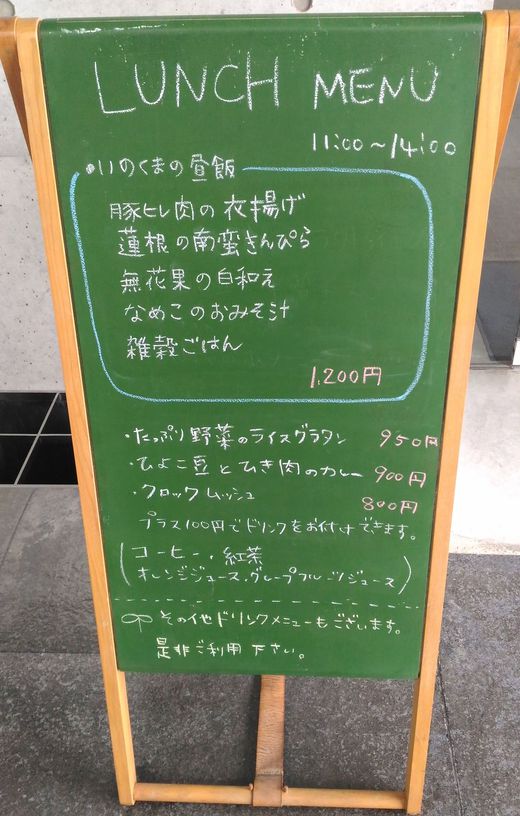 LUNCH MENU
11:00～14:00
・いのくまの昼飯
豚ヒレ肉の衣揚げ
蓮根の南蛮きんぴら
無花果の白和え
なめこのおみそ汁
雑穀ごはん
1,200円
・たっぷり野菜のライスグラタン 950円
・ひよこ豆とひき肉のカレー 900円
・クロックムッシュ 800円
プラス100円でドリンクをお付けできます。
(コーヒー・紅茶
オレンジジュース・グレープフルーツジュース)
その他ドリンクメニューもございます。
是非ご利用下さい。